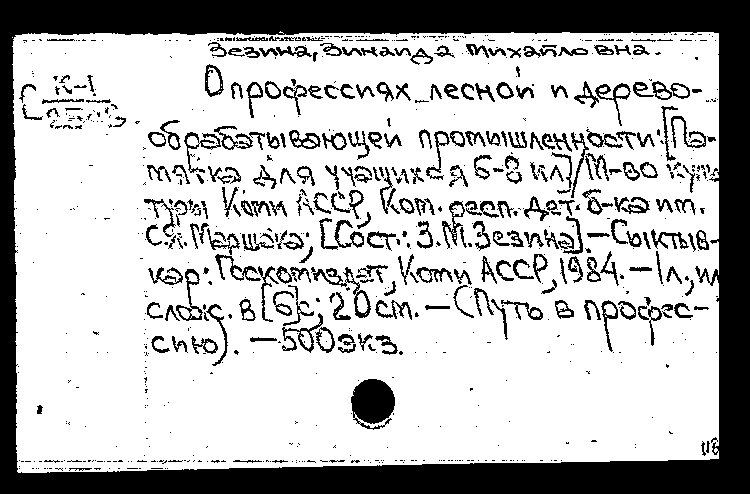 Зезина, Зинаида Михайловна.
К-I
О профессиях лесной и дерево-
обрабатывающей промышленности: [Па-
мятка для учащихся 6-8 кл]/М-во куль
туры Коми АССР, Ком. респ. дет. б-ка им.
С.Я. Маршака; [Сост.: З.М.Зезина]. — Сыктыв-
кар: Госкомиздат, Коми АССР, 1984. — 1л., ил
слож. в [6]с; 20см. — (Путь в профес-
сию). — 500экз.